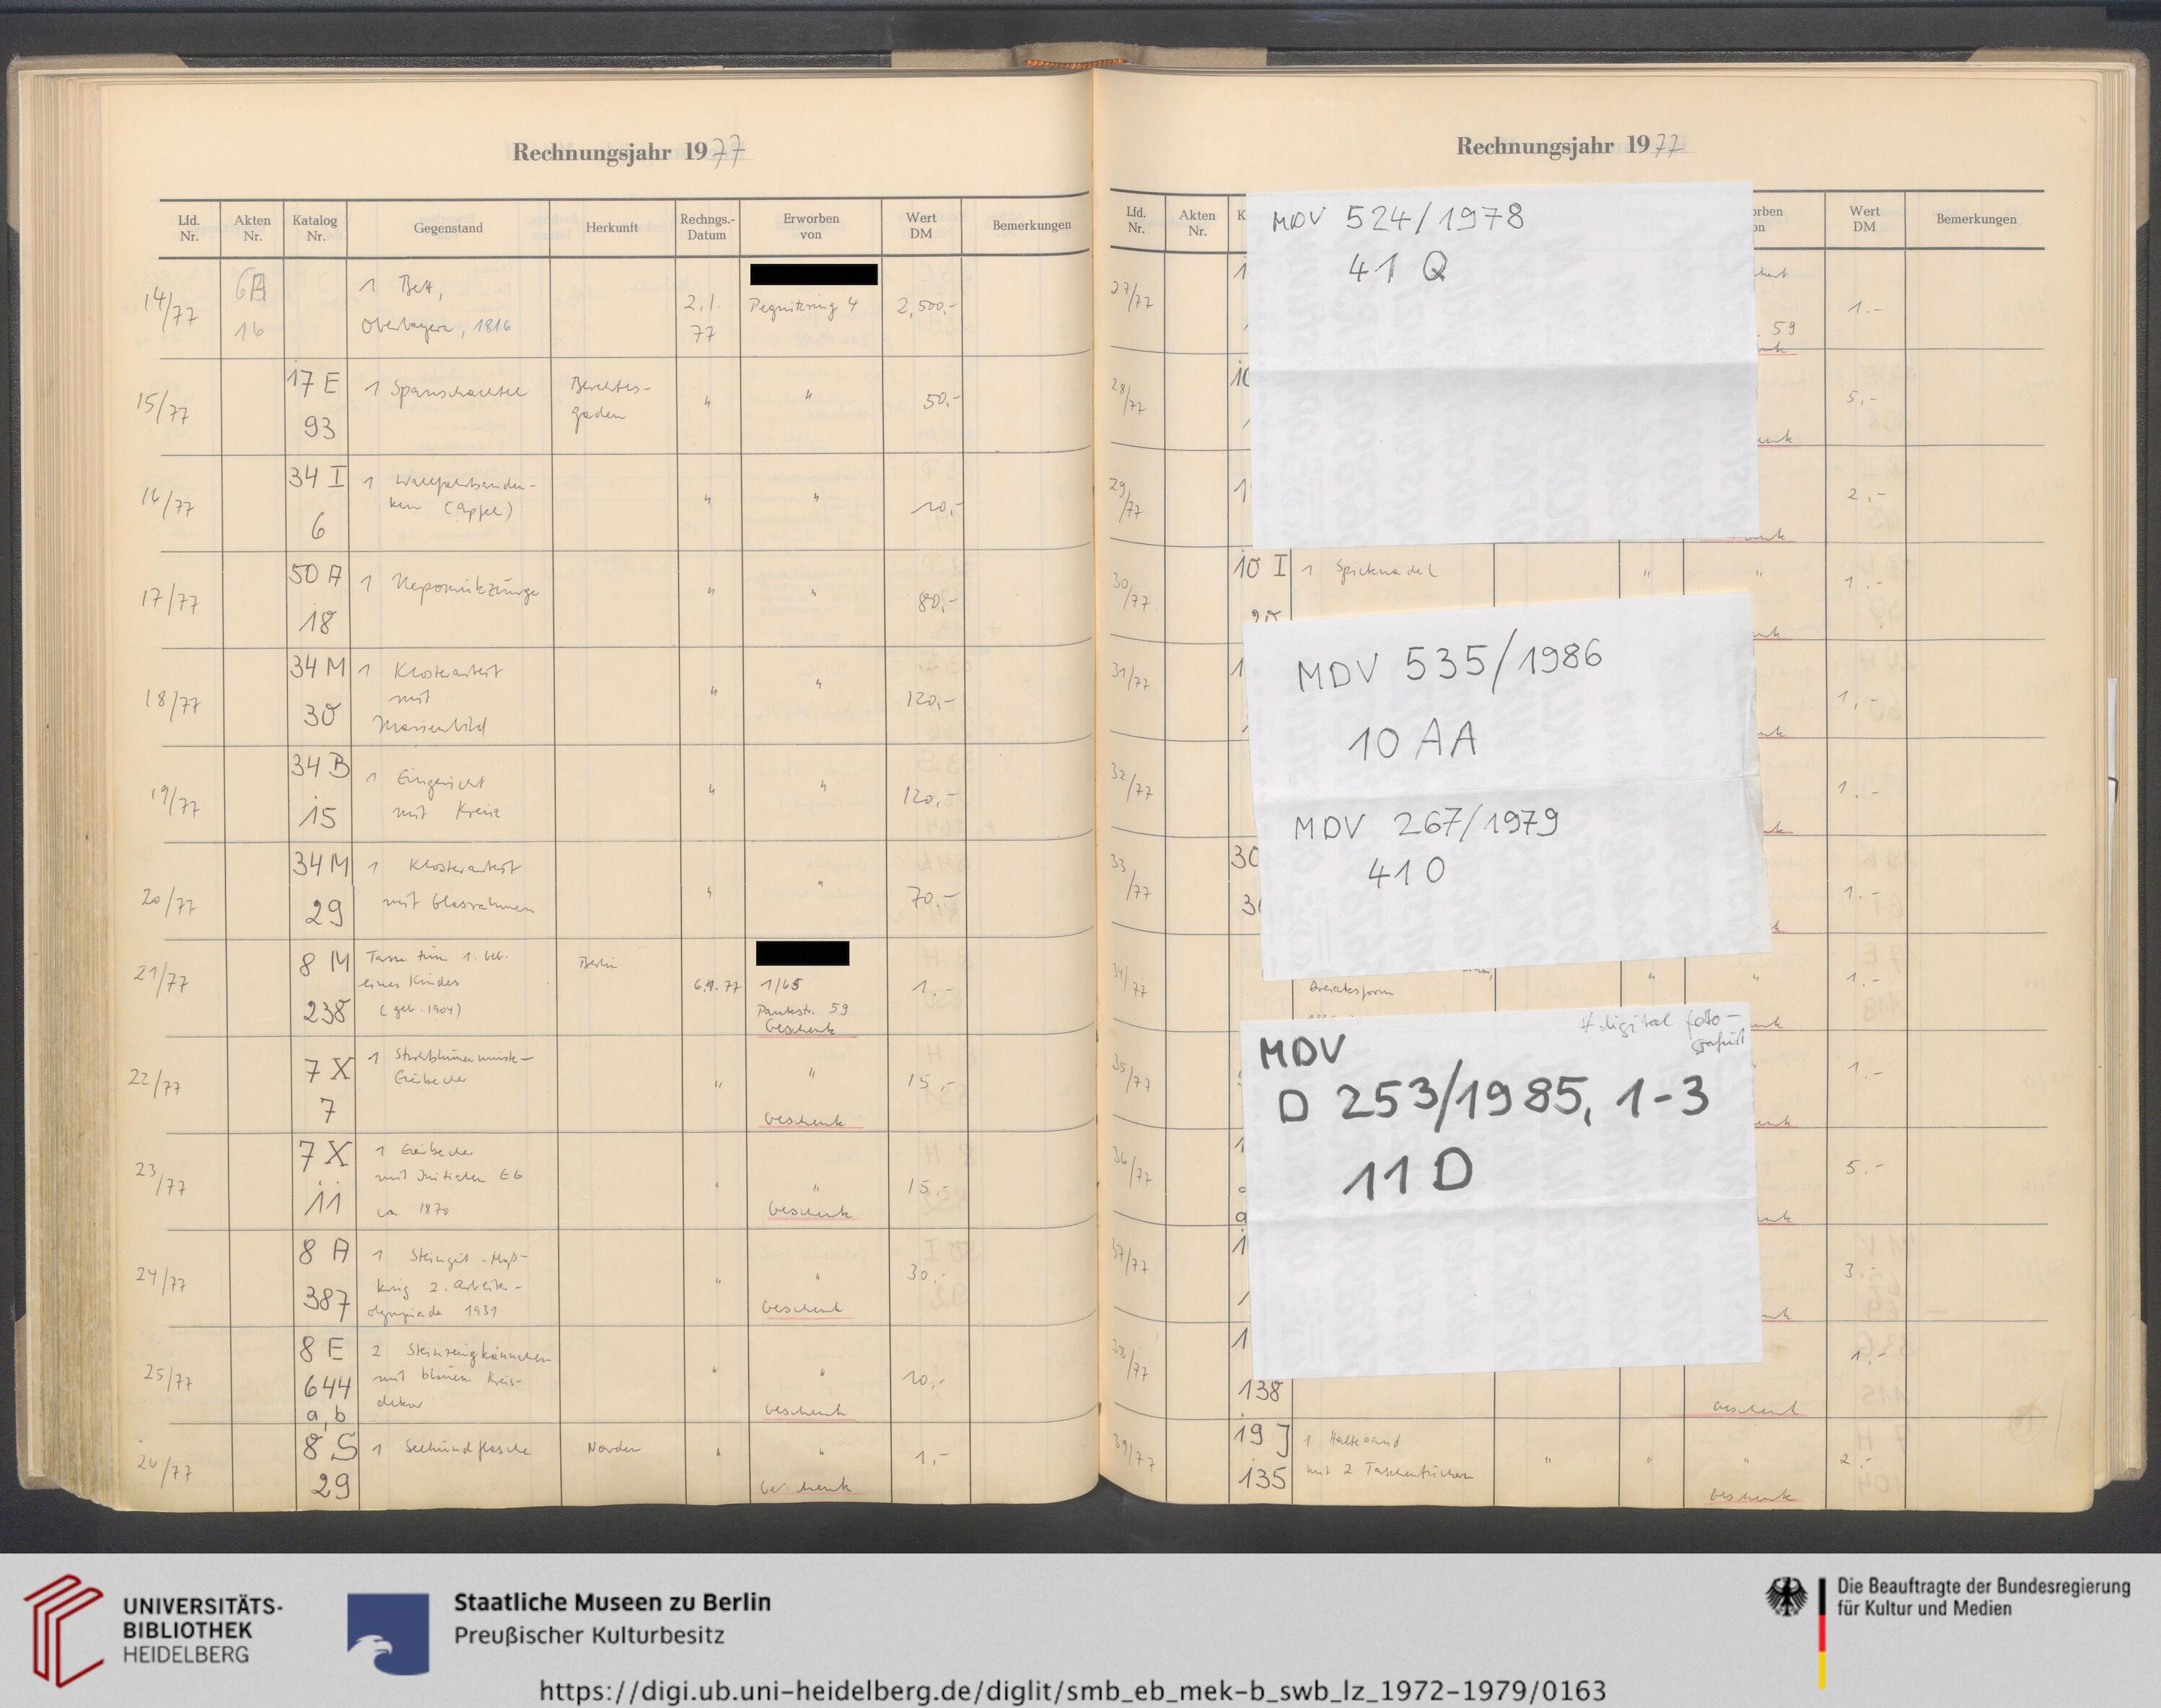 Rechnungsjahr 1977
Lfd. Nr.
Akten Nr.
Katalog Nr.
Gegenstand
Herkunft
Rechngs.-Datum
Erworben von
Wert DM
Bemerkungen
14/77
16
1 Bett,
Oberbayern, 1816
2.1.
77
Pegnitzring 4
2,500,-
15/77
17 E
93
1 Spanschachtel
Berchtes-
gaden
"
"
50,-
16/77
34 I
6
1 Wallfahrtsanden-
ken (Apfel)
"
"
10,-
17/77
50 A
18
1 Nepomukzunge
"
"
80,-
18/77
34 M
30
1 Klosterarbeit
mit
Marienbild
"
"
120,-
19/77
34 B
15
1 Eingericht
mit Kreuz
"
"
120,-
20/77
34 M
29
1 Klosterarbeit
mit Glasrahmen
"
"
70,-
21/77
8 M
238
Tasse zum 1. Geb.
eines Kindes
(geb. 1904)
Berlin
6.1.77
1/65
Pankstr. 59
Geschenk
1.-
22/77
7 X
7
"
"
Geschenk
15,-
23/77
7 X
11
1
mit Initialen EG
ca 1870
"
"
Geschenk
15,-
24/77
8 A
387
1 Steingut-Maß-
krug 2. Arbeiter-
olympiade 1931
"
"
Geschenk
30.-
25/77
8 E
644
a, b
2 Steinzeugkännchen
mit blauem Kreis-
dekor
"
"
Geschenk
10,-
26/77
8 S
29
1 Seehundflasche
Norden
"
"
Geschenk
1,-
Rechnungsjahr 1977
Lfd. Nr.
Akten Nr.
K
Wert DM
Bemerkungen
MDV 524/1978
41 Q
27/77
59
1.-
28/77
5,-
29/77
2,-
30/77
10 I
1 Spicknadel
"
"
1.-
MDV 535/1986
10 AA
MDV 267/1979
41 O
31/77
1,-
32/77
1.-
33/77
1.-
34/77
Dreiecksform
"
"
1.-
MDV
D 253/1985, 1-3
11 D
# digital foto-
grafiert
35/77
1.-
36/77
5.-
37/77
3.-
38/77
138
Geschenk
1.-
39/77
19 J
135
1 Halteband
mit 2 Taschentüchern
"
"
"
Geschenk
2.-
UNIVERSITÄTS-
BIBLIOTHEK
HEIDELBERG
Staatliche Museen zu Berlin
Preußischer Kulturbesitz
Die Beauftragte der Bundesregierung
für Kultur und Medien
https://digi.ub.uni-heidelberg.de/diglit/smb_eb_mek-b_swb_lz_1972-1979/0163